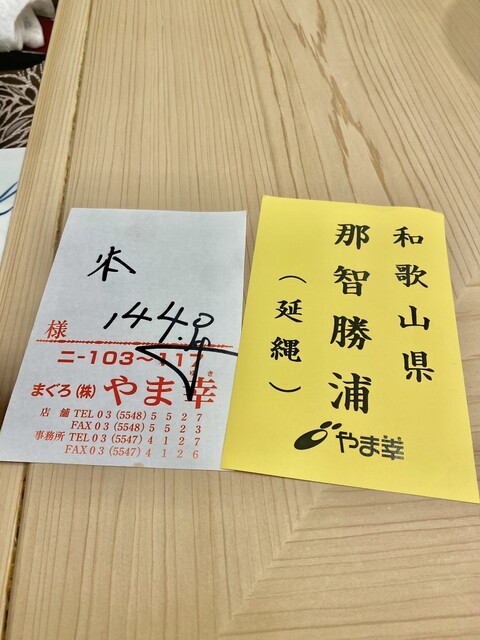 本
144.8
様
ニ-103〜117
まぐろ(株)やま幸
店 舗 TEL 03 (5548) 5 5 2 7
FAX 03 (5548) 5 5 2 3
事務所 TEL 03 (5547) 4 1 2 7
FAX 03 (5547) 4 1 2 6
和歌山県
那智勝浦
(延縄)
やま幸